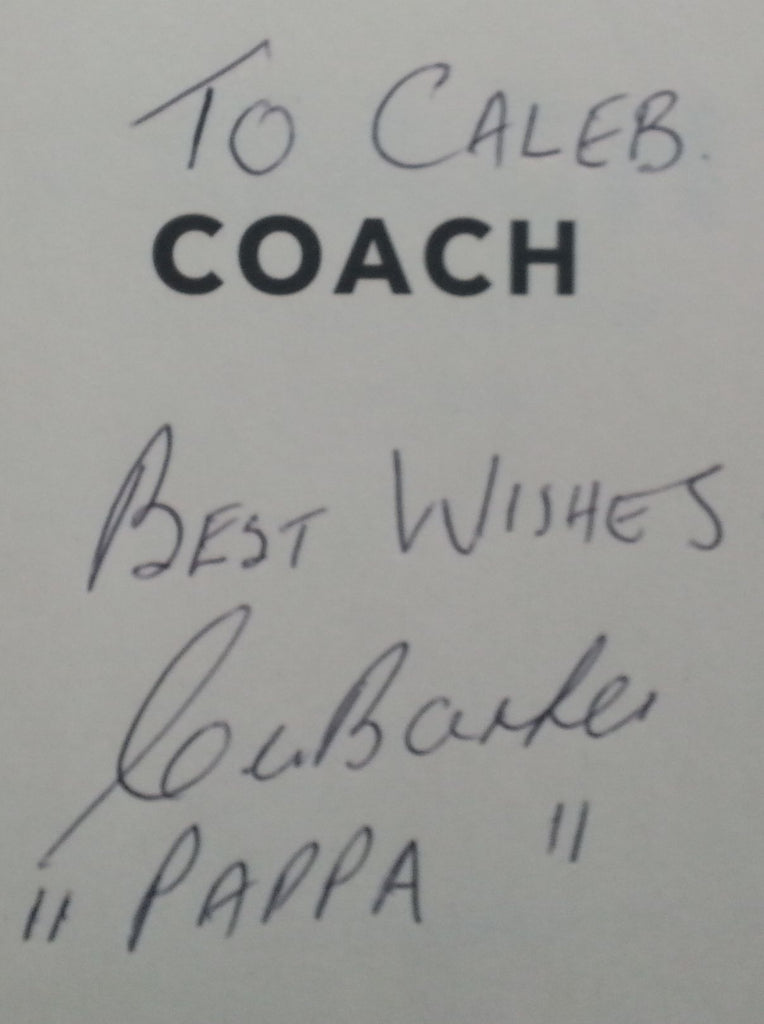 TO CALEB.
COACH
BEST WISHES
"PAPPA"